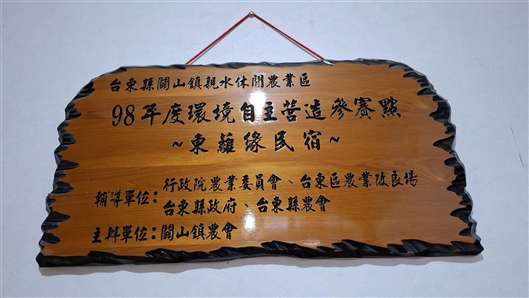 台東縣關山鎮親水休閒農業區
98年度環境自主營造參賽點
~東籬緣民宿~
輔導單位:行政院農業委員會、台東區農業改良場
台東縣政府、台東縣農會
主辦單位:關山鎮農會